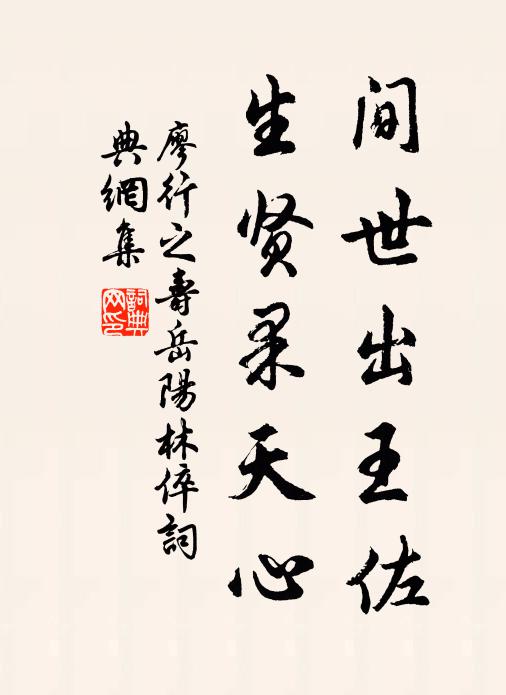 间世出王佐
生贤果天心
廖行之寿岳陽林倅詞
典網集
詞典网印